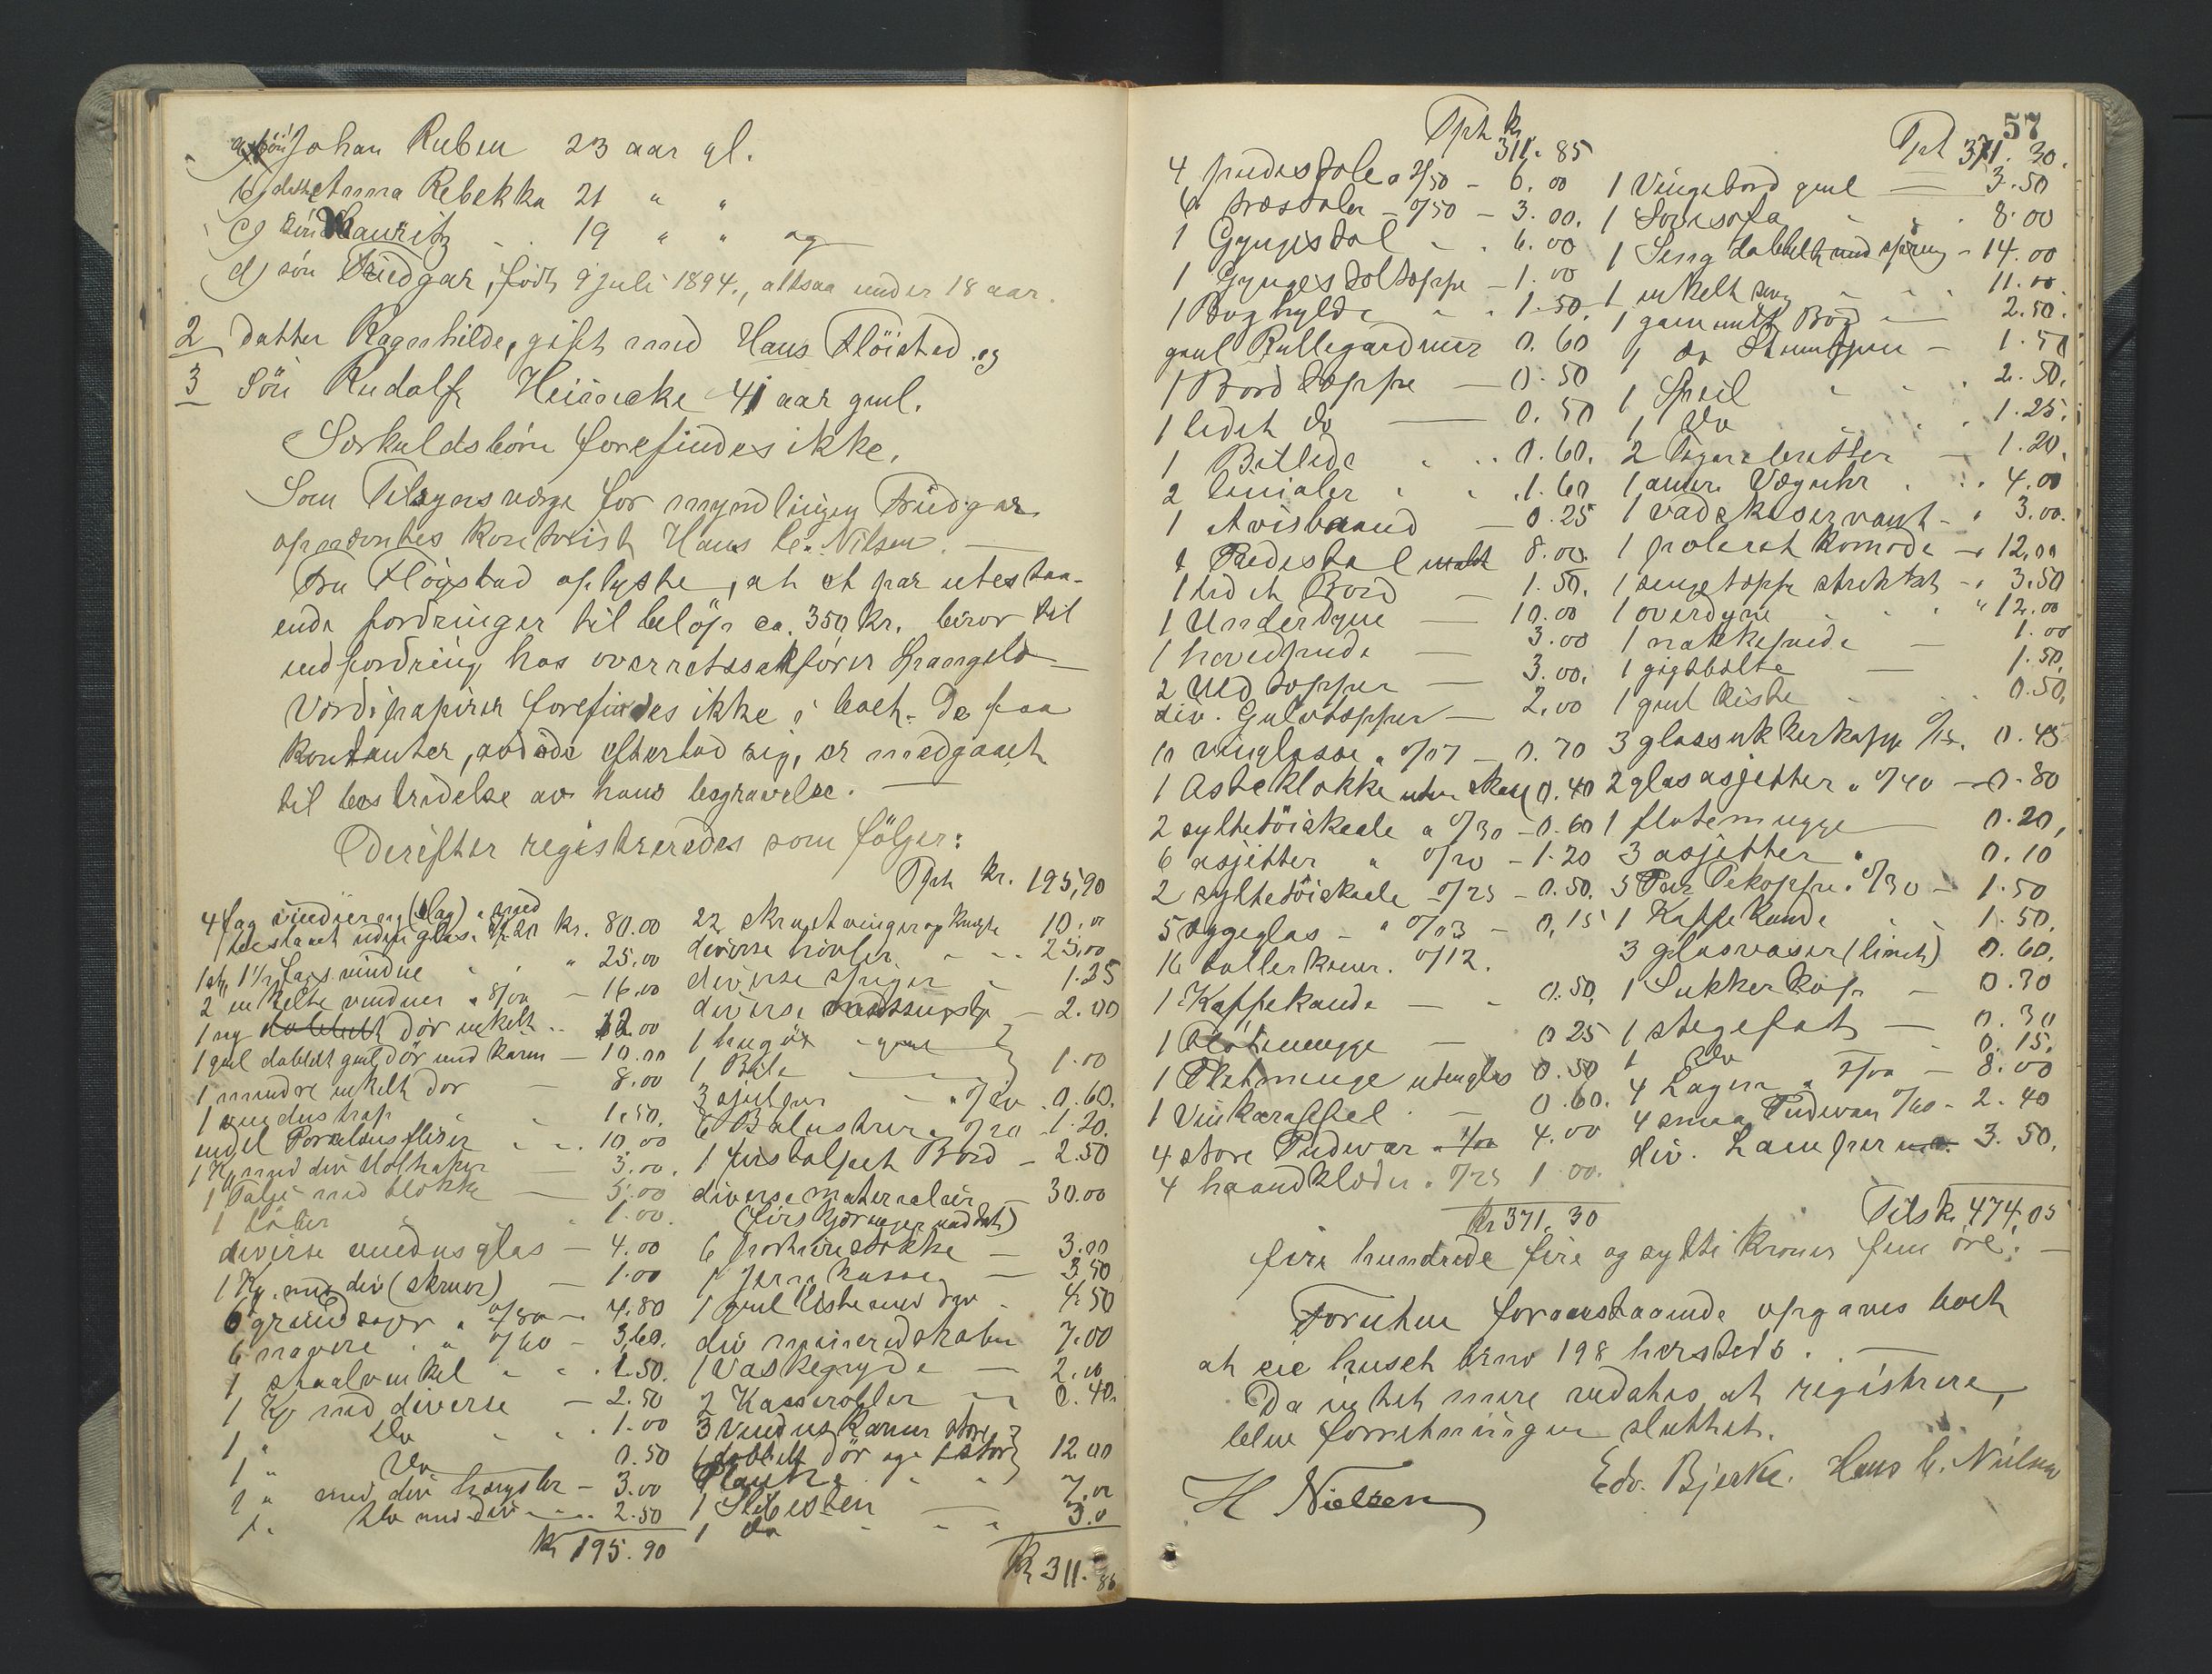 a) søn Johan Ruben 23 aar gl.
b) datter Anna Rebekka 21 " "
c) søn Lauritz 19 " " og
d) søn Fridgar, født 9 juli 1894, altsaa under 18 aar.
2 datter Ragnhilde, gift med Hans Fløistad og
3 Søn Rudolf Heinecke 41 aar gml.
Særkuldsbørn forefindes ikke.
Som Tilsynsværge for myndlingen Fridgar
opnævntes kontorist Hans C. Nilsen. —
Fru Fløystad oplyste, at et par utestaa-
ende fordringer til beløp ca. 350 kr. beror til
indfordring hos overretssakfører —
Værdipapirer forefindes ikke i boet. De faa
kontanter, avdøde efterlod sig, er medgaaet
til bestridelse av hans begravelse. —
Derefter registreredes som følger:
4 fag vinduer med
uden glas kr. 80.00
1 1/2 fags vindue " 25.00
2 enkelte vinduer a 8/00 — 16.00
1 ny dør enkelt 12.00
1 gml dobbelt gml dør med karm — 10.00
1 mindre enkelt dør — 8.00
1 1.50.
endel Porcelænsfliser 10.00
1 Kg. med div 3.00.
1 Talje med blokke — 5.00
1 1.00.
diverse vindusglas — 4.00
1 Kg. med div (skruer) — 1.00
6 grindsager a 0/80 — 4.80
6 navere " 0/60 — 3.60.
1 staalvinkel 1.50.
1 Kg med diverse — 2.50
1 " Do 1.00
1 " Do 0.50
1 " med div hængsler — 3.00
1 " Do med div 2.50
Kr 195.90
Tpt kr. 195,90
22 skruetvinger 10.00
diverse høvler 25.00
diverse spiger 1.35
diverse 2.00
1
1 1.00
3 a 0/20 0.60.
6 Balustrer a 0/20 1.20.
1 Bord — 2.50
diverse materialier — 30.00
6 — 3.00
1 Jern kasse — 3.50
1 gml kiste med Do 4.50
div 7.00
1 Vaskegryde 2.00
2 Kasseroller 0.40.
3 Vindus Karm store
1 dobbelt dør 12.00
Planke 7.00
1 Slibesten
1 do 3.0
Kr 311.85
57
Tpt kr 311.85
4 pudestole a 1/50 — 6.00
6 træstoler — 0/50 — 3.00.
1 Gyngestol 6.00
1 Gyngestoltæppe — 1.00
1 Boghylde 1.50.
gml Rullegardiner 0.60
1 Bordtæppe — 0.50
1 lidet do — 0.50
1 Billede 0.60.
2 linialer 1.60
1 Avisbaand — 0.25
1 Piedestal 8.00.
1 lidet Bord — 1.50.
1 Underdyne — 10.00
1 hovedpude — 3.00
2 Uldtæpper — 3.00.
div. Gulvtæpper — 2.00
10 vinglasse a 0/07 — 0.70
1 Osteklokke uten skaal 0.40
2 syltetøiskaale a 0/30 — 0.60
6 asjetter " 0/20 — 1.20
2 syltetøiskaale 0/25 — 0.50.
5 æggeglas — " 0/03 — 0,15
16 tallerkener. 0/12.
1 Kaffekande — 0.50.
1 Fløtemugge — 0.25
1 Glatmugge 0.50
1 Vinkaraffel — 0.60.
4 store Pudevar a 1/00 4.00
4 haandklæder a 0/25 1.00.
Kr 371.30
Tpt 371.30.
1 Vingebord gml — 3.50
1 Sovesofa 8.00
1 Seng dobbelt med — 14.00
1 enkelt seng 11.00.
1 gammelt Bord 2.50.
1 do — 1.50
1 Speil 2.50.
1 Do 1.25.
2 — 1.20.
1 amr. Væguhr 4.00
1 vadskeservant 3.00.
1 poleret Komode 12.00
1 sengetæppe strikket 3.50
1 overdyne " 12.00
1 nakkepude — 1.00
1 gigtbælte — 1.50.
1 gml kiste 0.50.
3 glassukkerkopp 0/15. 0.45
2 glasasjetter a 0/40 — 0.80
1 fløtemugge — 0.20,
3 asjetter " 0.10
5 Par Tekopper a 0/30 — 1.50
1 Kaffekande 1.50.
3 glasvaser (limet) 0.60.
1 Sukkerkop — 0.30
1 stegefat — 0.30
1 Do — 0.15.
4 Lagen a 2/00 — 8.00
4 smaa Pudevar 0/60 — 2.40
div. Lamper 3.50.
Tils kr 474,05
fire hundrede fire og sytti kroner fem øre. —
Foruten foranstaaende opgaves boet
at eie huset brno 198 hersteds. —
Da intet mere vedates at registrere,
blev forretningen sluttet.
H Nielsen
Edv. Bjerke. Hans C. Nilsen